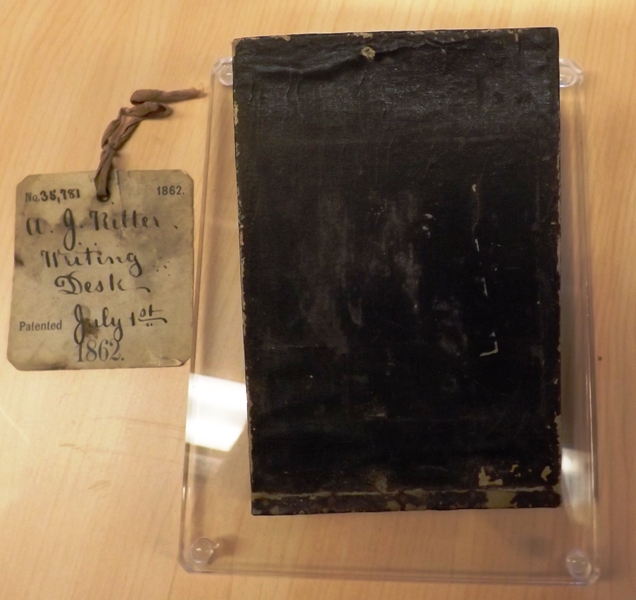 No. 35,781 1862.
A. J. Ritter.
Writing
Desk
Patented July 1st
1862.